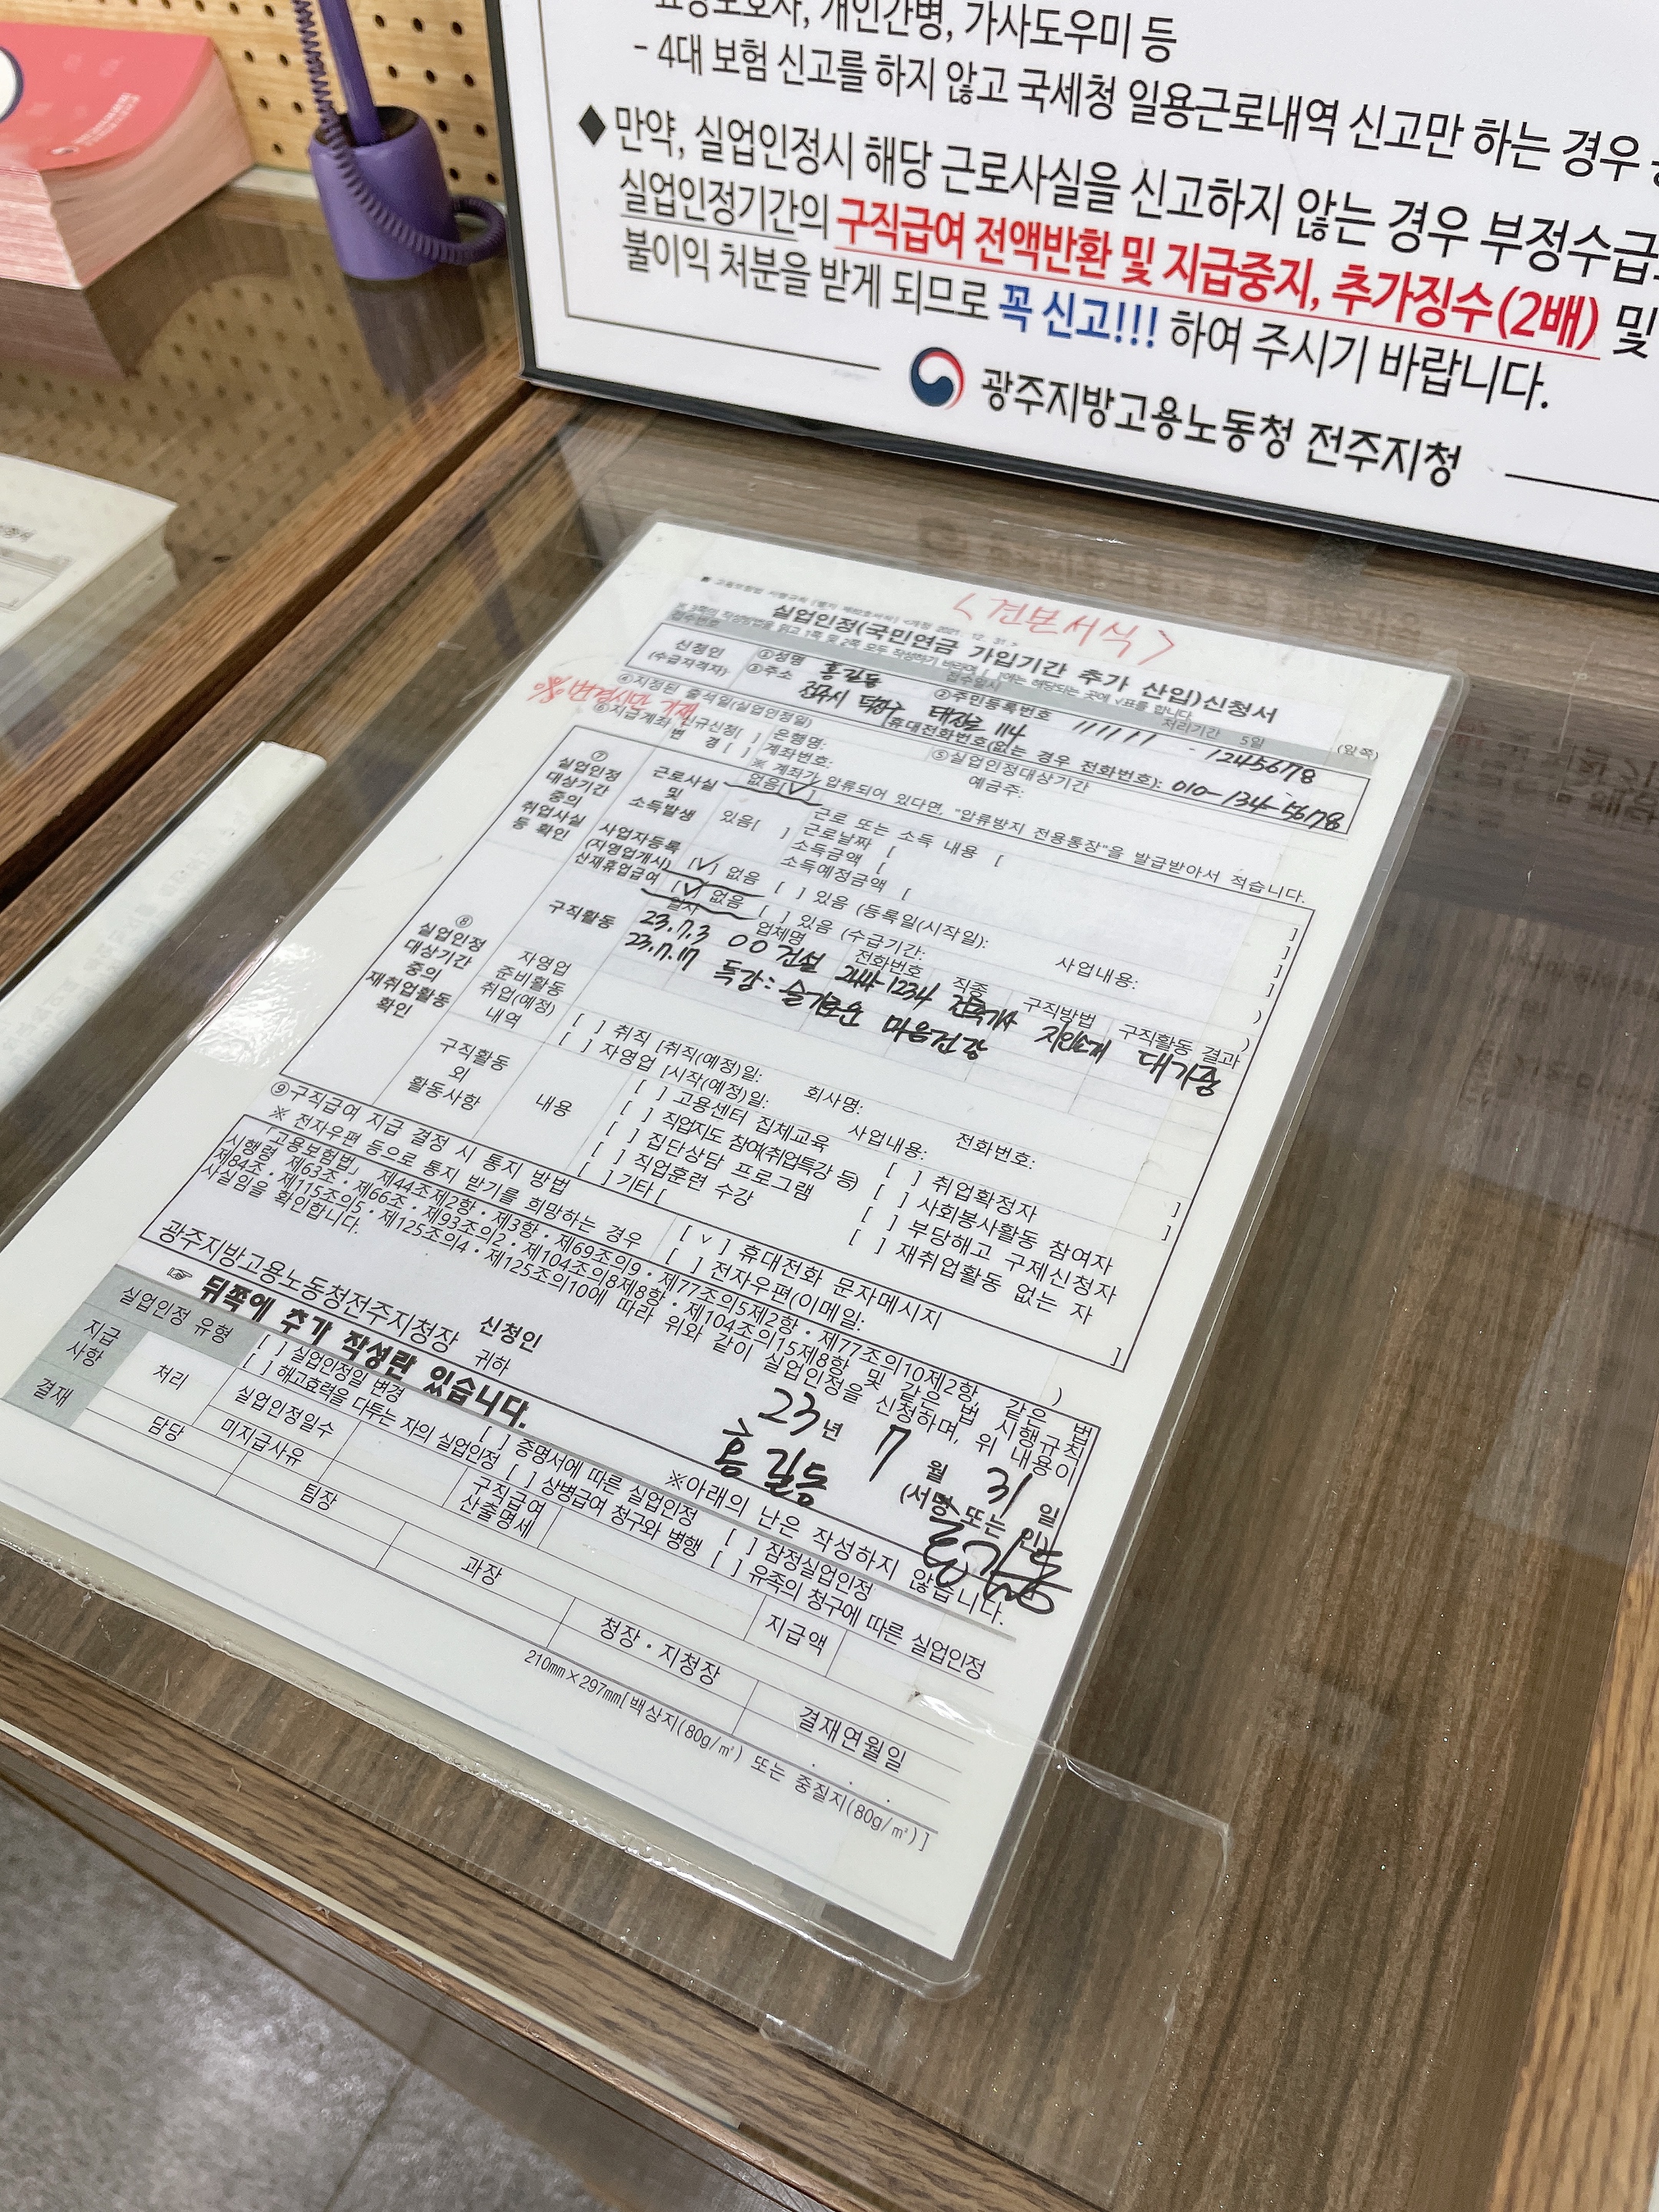 요양보호사, 개인간병, 가사도우미 등
- 4대 보험 신고를 하지 않고 국세청 일용근로내역 신고만 하는 경우
◆ 만약, 실업인정시 해당 근로사실을 신고하지 않는 경우 부정수급
실업인정기간의 구직급여 전액반환 및 지급중지, 추가징수(2배) 및
불이익 처분을 받게 되므로 꼭 신고!!! 하여 주시기 바랍니다.
광주지방고용노동청 전주지청
<견본서식>
실업인정(국민연금 가입기간 추가 산입)신청서
접수번호 접수일시 처리기간 5일
(앞쪽)
신청인 (수급자격자) ①성명 홍길동 ②주민등록번호 111111 - 1245678
③주소 전주시 덕진구 태진로 114
[휴대전화번호(없는 경우 전화번호): 010-134-5678
④지정된 출석일(실업인정일) ⑤실업인정대상기간
※ 변경시만 기재
⑥지급계좌 신규신청[ ] 은행명: 예금주:
변 경[ ] 계좌번호:
※ 계좌가 압류되어 있다면, "압류방지 전용통장"을 발급받아서 적습니다.
⑦ 실업인정 대상기간 중의 취업사실 등 확인
근로사실 및 소득발생 없음[√]
있음[ ] 근로 또는 소득 내용 [ ]
근로날짜 [ ]
소득금액 [ ]
소득예정금액 [
사업자등록 (자영업개시) [√] 없음 [ ] 있음 (등록일(시작일): 사업내용: )
산재휴업급여 [√] 없음 [ ] 있음 (수급기간: )
⑧ 실업인정 대상기간 중의 재취업활동 확인
구직활동 일자 업체명 전화번호 직종 구직방법 구직활동 결과
23.7.3 OO건설 244-1234 건축기사 지인소개 대기중
23.7.17 특강: 슬기로운 마음건강
자영업 준비활동
취업(예정) 내역 [ ] 취직 [취직(예정)일: 회사명: 전화번호: ]
[ ] 자영업 [시작(예정)일: 사업내용: ]
구직활동 외 활동사항 내용
[ ] 고용센터 집체교육 [ ] 취업확정자
[ ] 직업지도 참여(취업특강 등) [ ] 사회봉사활동 참여자
[ ] 집단상담 프로그램 [ ] 부당해고 구제신청자
[ ] 직업훈련 수강 [ ] 재취업활동 없는 자
[ ] 기타 [ ]
⑨구직급여 지급 결정 시 통지 방법 [ v ] 휴대전화 문자메시지
※ 전자우편 등으로 통지 받기를 희망하는 경우 [ ] 전자우편(이메일: )
「고용보험법」 제44조제2항·제3항·제69조의9·제77조의5제2항·제77조의10제2항, 같은 법
시행령 제63조·제66조·제93조의2·제104조의8제8항·제104조의15제8항 및 같은 법 시행규칙
제84조·제115조의5·제125조의4·제125조의10에 따라 위와 같이 실업인정을 신청하며, 위 내용이
사실임을 확인합니다.
23년 7 월 31 일
신청인 홍길동 (서명 또는 인) 홍길동
광주지방고용노동청전주지청장 귀하
☞ 뒤쪽에 추가 작성란 있습니다. ※아래의 난은 작성하지 않습니다.
실업인정 유형 [ ] 실업인정일 변경 [ ] 증명서에 따른 실업인정 [ ] 잠정실업인정
[ ] 해고효력을 다투는 자의 실업인정 [ ] 상병급여 청구와 병행 [ ] 유족의 청구에 따른 실업인정
지급 사항 처리 실업인정일수 구직급여 산출명세 지급액
미지급사유
결재 담당 팀장 과장 청장·지청장 결재연월일
. . .
210㎜×297㎜[백상지(80g/㎡) 또는 중질지(80g/㎡)]